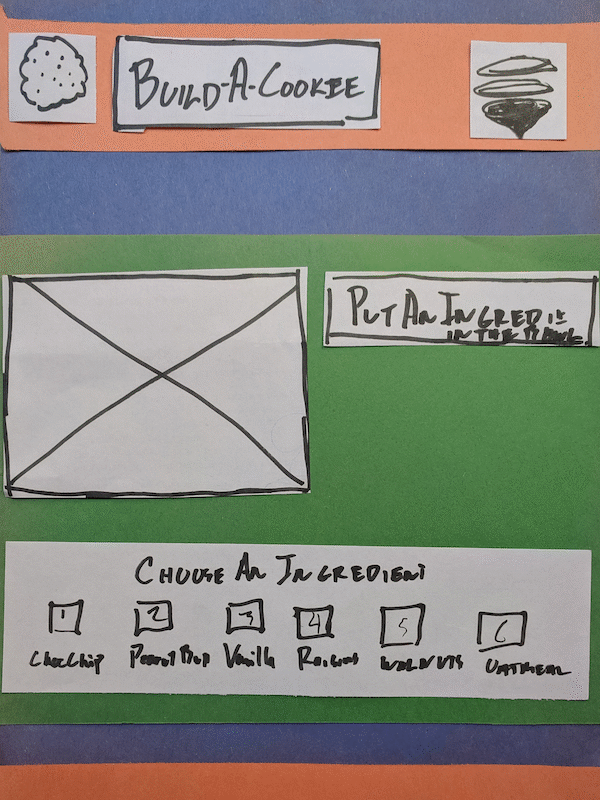 BUILD-A-COOKIE
PUT AN INGREDI
IN THE
CHOOSE AN INGREDIENT
1 2 3 4 5 6
ChocChip Peanut Vanilla Raisins WALNUTS OATMEAL